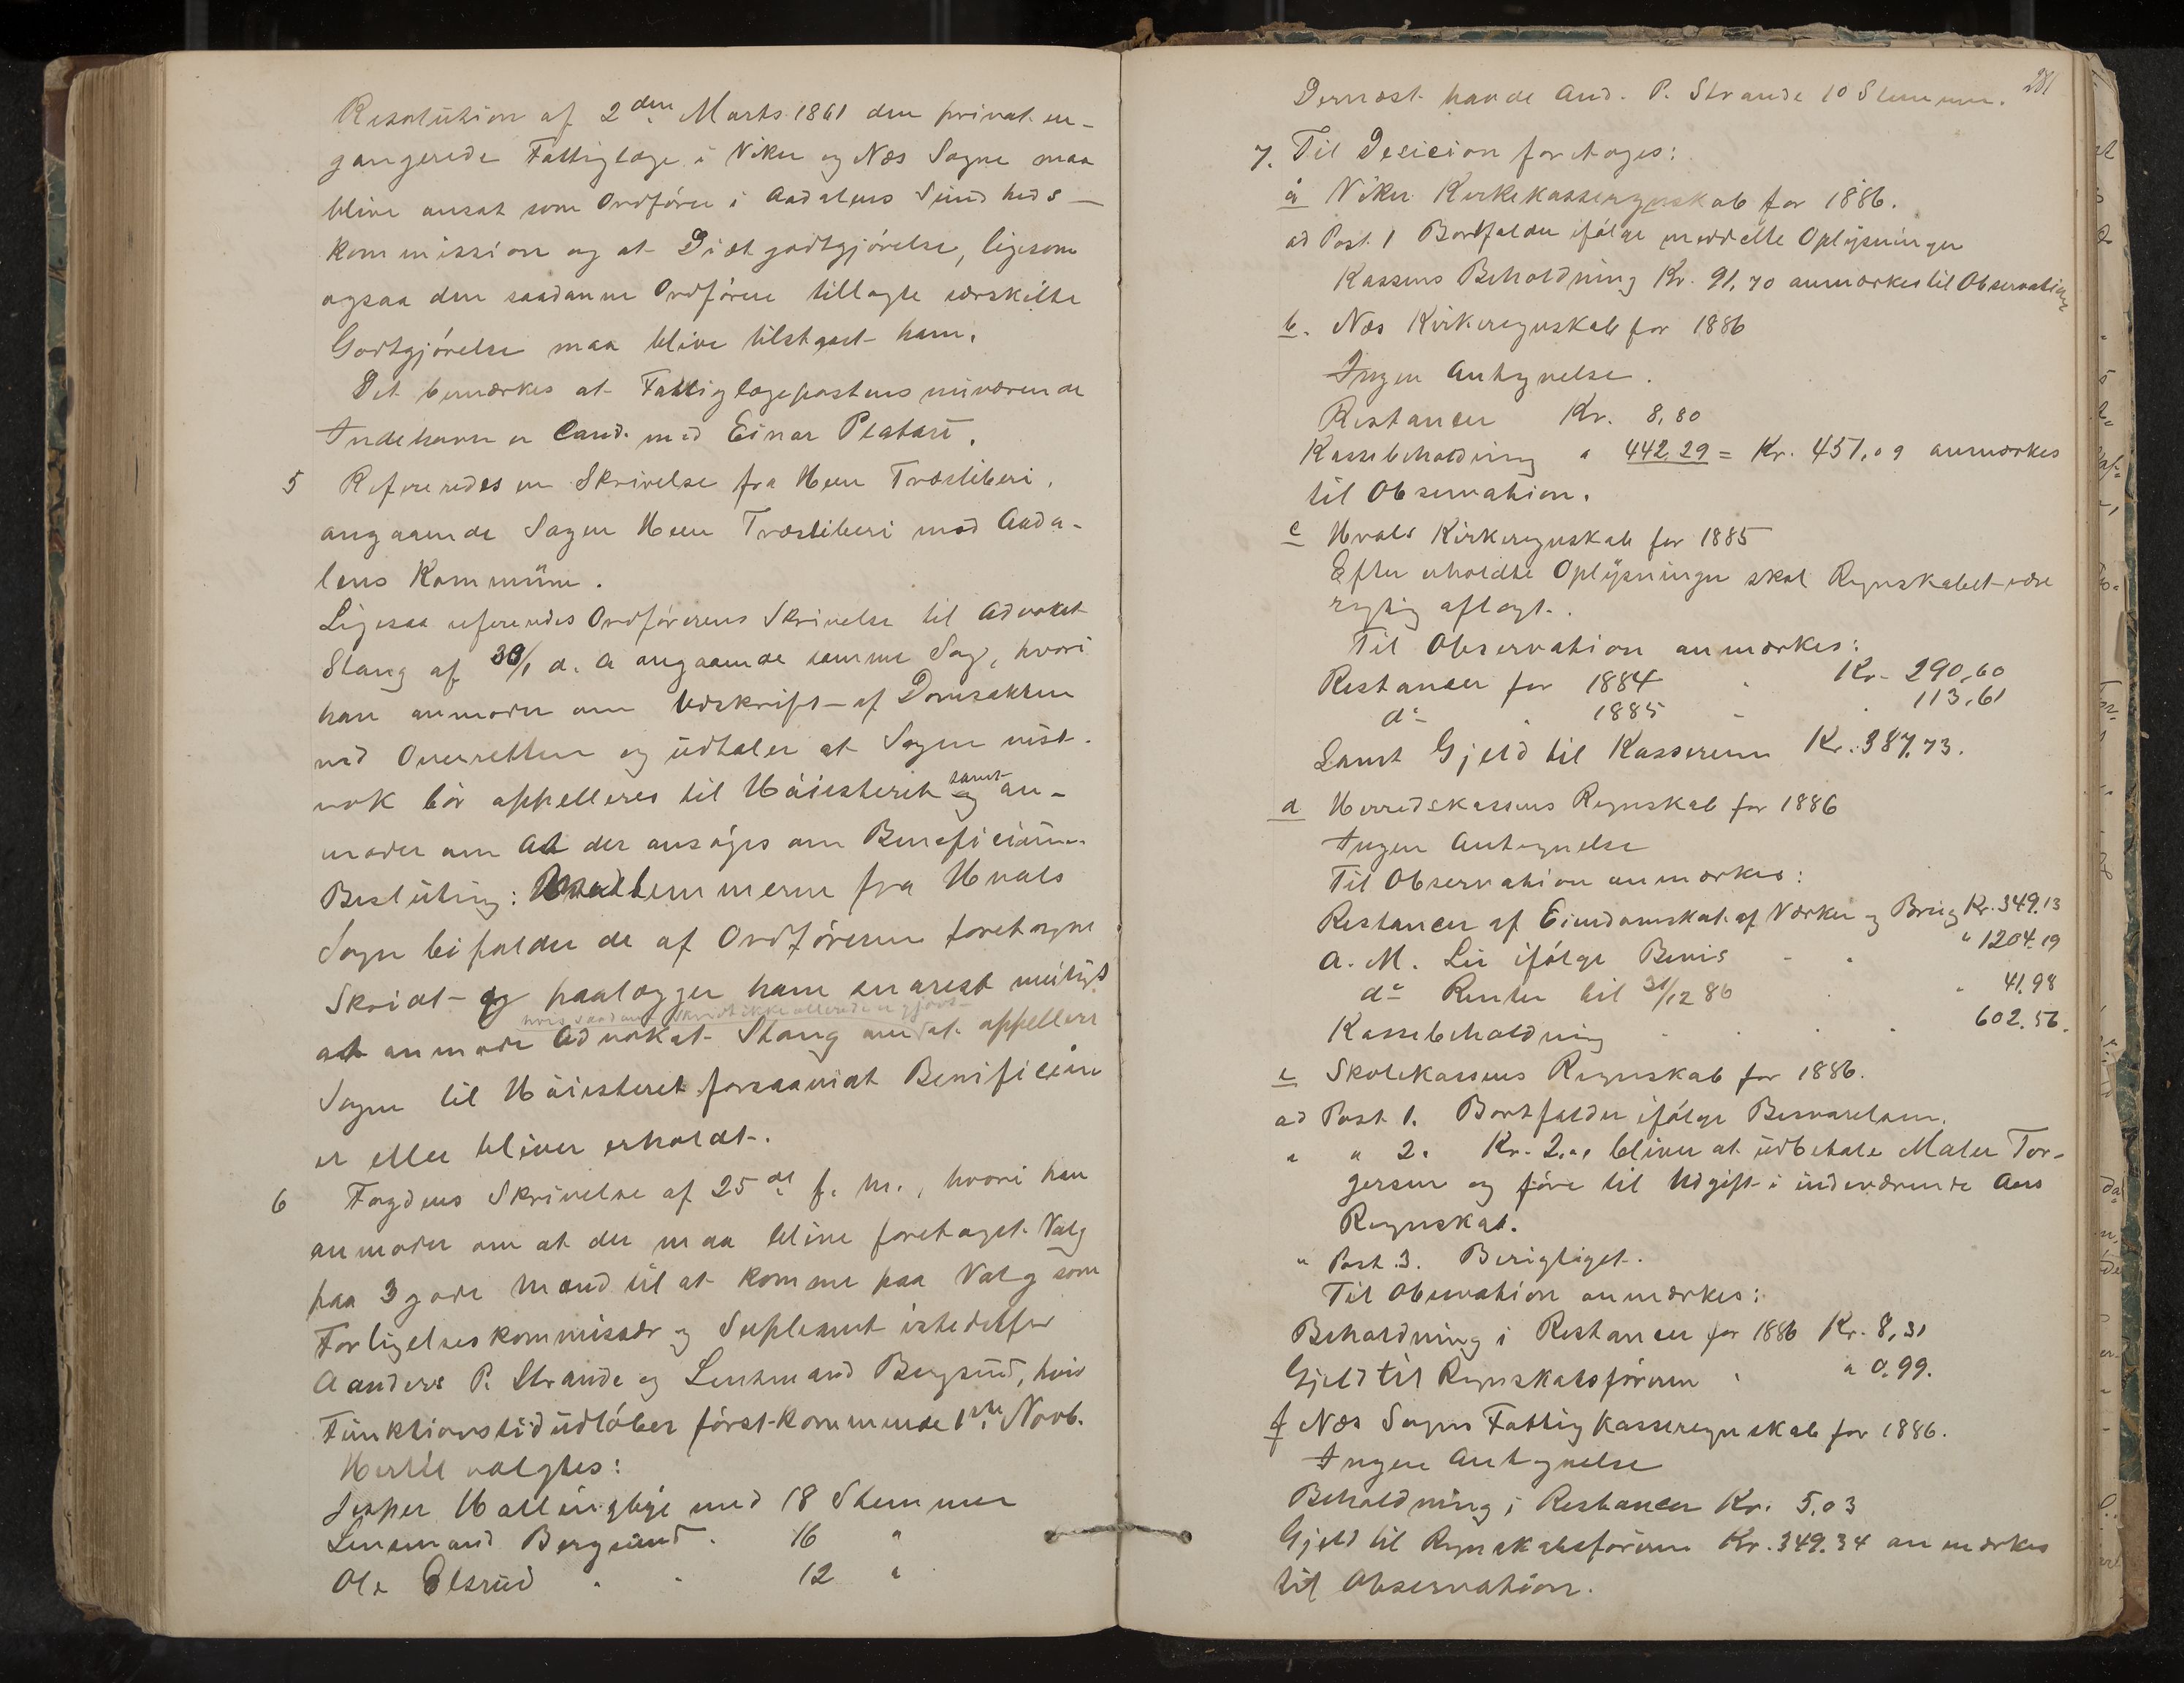 Resolution af 2den Marts 1861 den privat en-
gangerede Fattiglæge i Viker og Næs Sogne maa
blive ansat som Ordfører i Aadalens Sundheds-
kommission og at Diætgodtgjørelse, ligesom
ogsaa den saadanne Ordførere tillagte særskilte
Godtgjørelse maa blive tilstaaet ham.
Det bemærkes at Fattiglægepostens nuværende
Indehaver er Cand. med Einar Platou.
5 Refereredes en Skrivelse fra Heen Træsliberi,
angaaende Sagen Heen Træsliberi mod Aada-
lens Kommune.
Ligesaa refereredes Ordførerens Skrivelse til Advokat
Stang af 30/1 d. A angaaende samme Sag, hvori
han anmoder om Udskrift af Domsakten
ved Overretten og udtaler at Sagen vist-
nok bør appelleres til Høiesteret samt an-
moder om at der ansøges om Beneficium.
Beslutning: Medlemmerne fra Hvals
Sogn bifalder de af Ordføreren foretagne
Skridt og paalægger ham snarest muligt
hvis saadant Skridt ikke allerede er gjort
at anmode Advokat Stang om at appellere
Sagen til Høiesteret forsaavidt Benificium
er eller bliver erholdt.
6 Fogdens Skrivelse af 25de f. M., hvori han
anmoder om at der maa blive foretaget Valg
paa 3 gode Mænd til at komme paa Valg som
Forligelseskommissær og Supleant istedetfor
Aanders P. Strande og Lensmand Bergsund, hvis
Funktionstid udløber først-kommende 1ste Novb.
Hertil valgtes:
Jesper Hallingbye med 18 Stemmer
Lensmand Bergsund . 16 "
Ole Elsrud . . 12 "
281
Dernæst havde And. P. Strande 10 Stemmer.
7. Til Decicion foretoges:
a Viker Kirkekasseregnskab for 1886.
ad Post 1 Bortfalder ifølge meddelte Oplysninger
Kassens Beholdning Kr. 91,70 anmærkes til Observation
b. Næs Kirkeregnskab for 1886
Ingen Antegnelse.
Restancer Kr. 8,80
Kassebeholdning " 442,29 = Kr. 451,09 anmærkes
til Observation.
c Hvals Kirkeregnskab for 1885
Efter erholdte Oplysninger skal Regnskabet være
rigtig aflagt.
Til Observation anmærkes:
Restancer for 1884 " Kr. 290,60
do " 1885 - " 113,61
Samt Gjeld til Kassereren Kr. 387,73.
d Herredskassens Regnskab for 1886
Ingen Antegnelse
Til Observation anmærkes:
Restancer af Eiendomskat af Værker og Brug Kr. 349.13
A. M. Lie ifølge Bevis - " " 1204.19
do Renter til 31/12 86 . " 41.98
Kassebeholdning . . . . 602.56.
e Skolekassens Regnskab for 1886.
ad Post 1. Bortfalder ifølge Besvarelsen.
" " 2. Kr. 2.00 bliver at udbetale Maler Tor-
gersen og føre til Udgift i indeværende Aars
Regnskab.
" Post 3. Berigtiget.
Til Observation anmærkes:
Beholdning i Restancer for 1886 Kr. 8,31
Gjeld til Regnskabsføreren " " 0.99.
f Næs Sogns Fattigkasseregnskab for 1886.
Ingen Antegnelse
Beholdning i Restancer Kr. 5,03
Gjeld til Regnskabsføreren Kr. 349.34 anmærkes
til Observation.